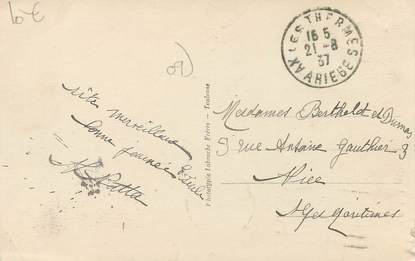 10€
AX LES THERMES
16 5
21 - 8
37
ARIEGE
09
merveilleux
bonne journée
Phototypie Labouche Frères - Toulouse
Mesdames Berthold et Dumas
9 rue Antoine Gauthier
Nice
Alpes Maritimes